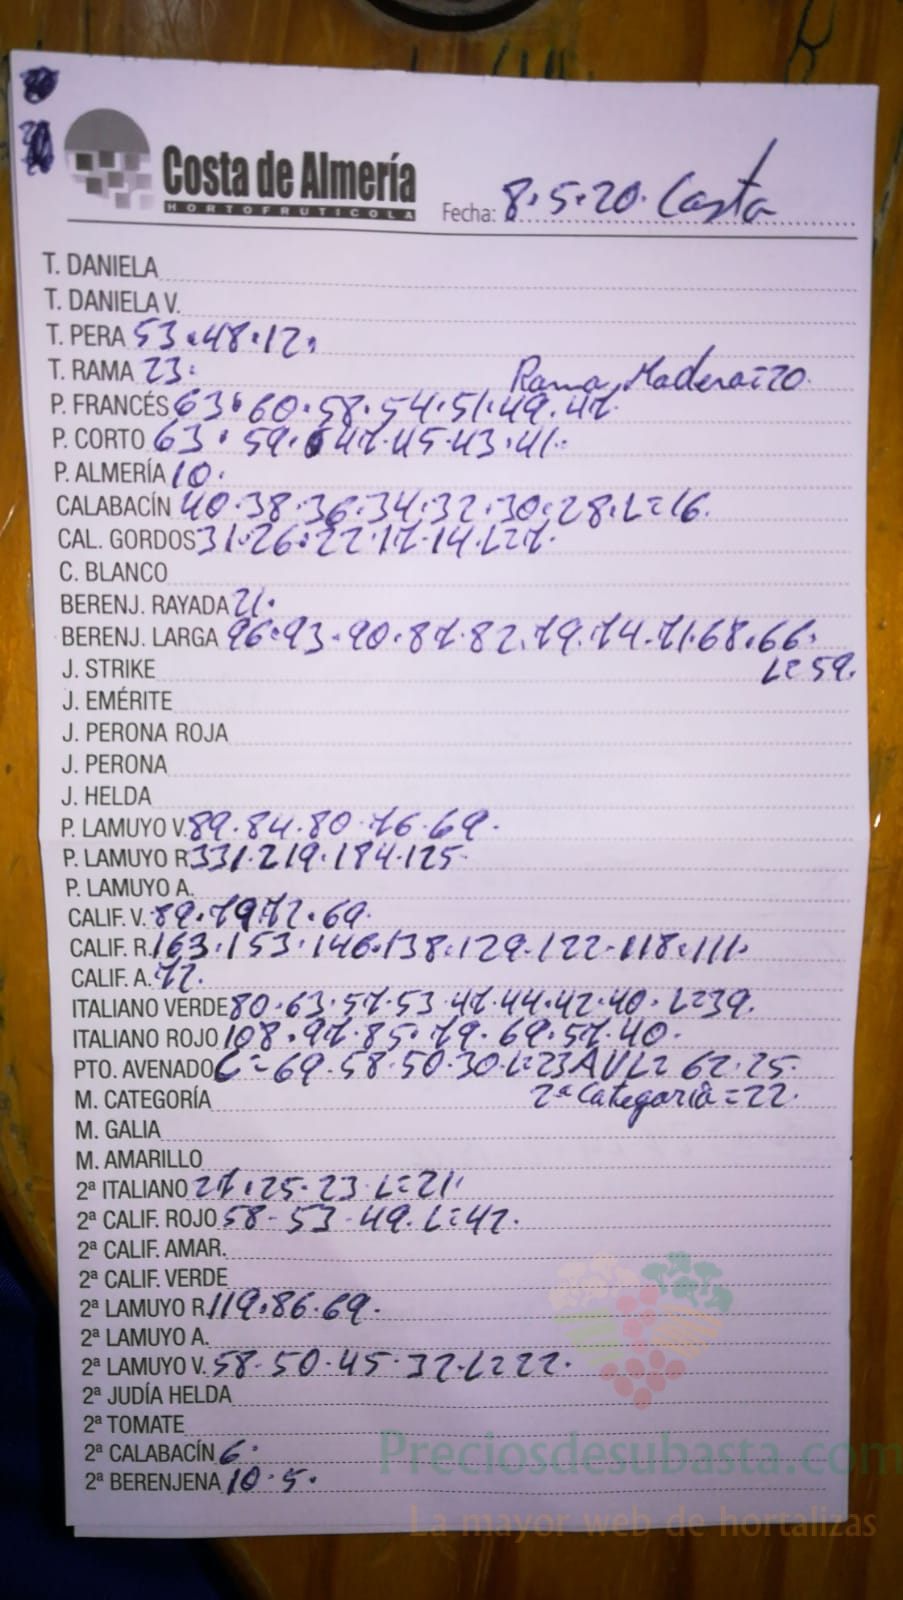 Costa de Almería
HORTOFRUTICOLA
Fecha: 8.5.20. Costa
T. DANIELA
T. DANIELA V.
T. PERA 53.48.12.
T. RAMA 23. Rama Madera=20.
P. FRANCÉS 63.60.58.54.51.49.47.
P. CORTO 63.59.47.45.43.41.
P. ALMERÍA 10.
CALABACÍN 40.38.36.34.32.30.28.L=16.
CAL. GORDOS 31.26.22.17.14.L=7.
C. BLANCO
BERENJ. RAYADA 21.
BERENJ. LARGA 96.93.90.87.82.79.74.71.68.66.
L=59.
J. STRIKE
J. EMÉRITE
J. PERONA ROJA
J. PERONA
J. HELDA
P. LAMUYO V. 89.84.80.76.69.
P. LAMUYO R. 331.219.184.125.
P. LAMUYO A.
CALIF. V. 89.79.72.69.
CALIF. R. 163.153.146.138.129.122.118.111.
CALIF. A. 72.
ITALIANO VERDE 80.63.57.53.47.44.42.40.L=39.
ITALIANO ROJO 108.97.85.79.69.57.40.
PTO. AVENADO C=69.58.50.30.L=23 AVL=62.25.
M. CATEGORÍA 2ª Categoria=22.
M. GALIA
M. AMARILLO
2ª ITALIANO 27.25.23.L=21.
2ª CALIF. ROJO 58.53.49.L=42.
2ª CALIF. AMAR.
2ª CALIF. VERDE
2ª LAMUYO R. 119.86.69.
2ª LAMUYO A.
2ª LAMUYO V. 58.50.45.32.L=22.
2ª JUDÍA HELDA
2ª TOMATE
2ª CALABACÍN 6.
2ª BERENJENA 10.5.
Preciosdesubasta.com
La mayor web de hortalizas